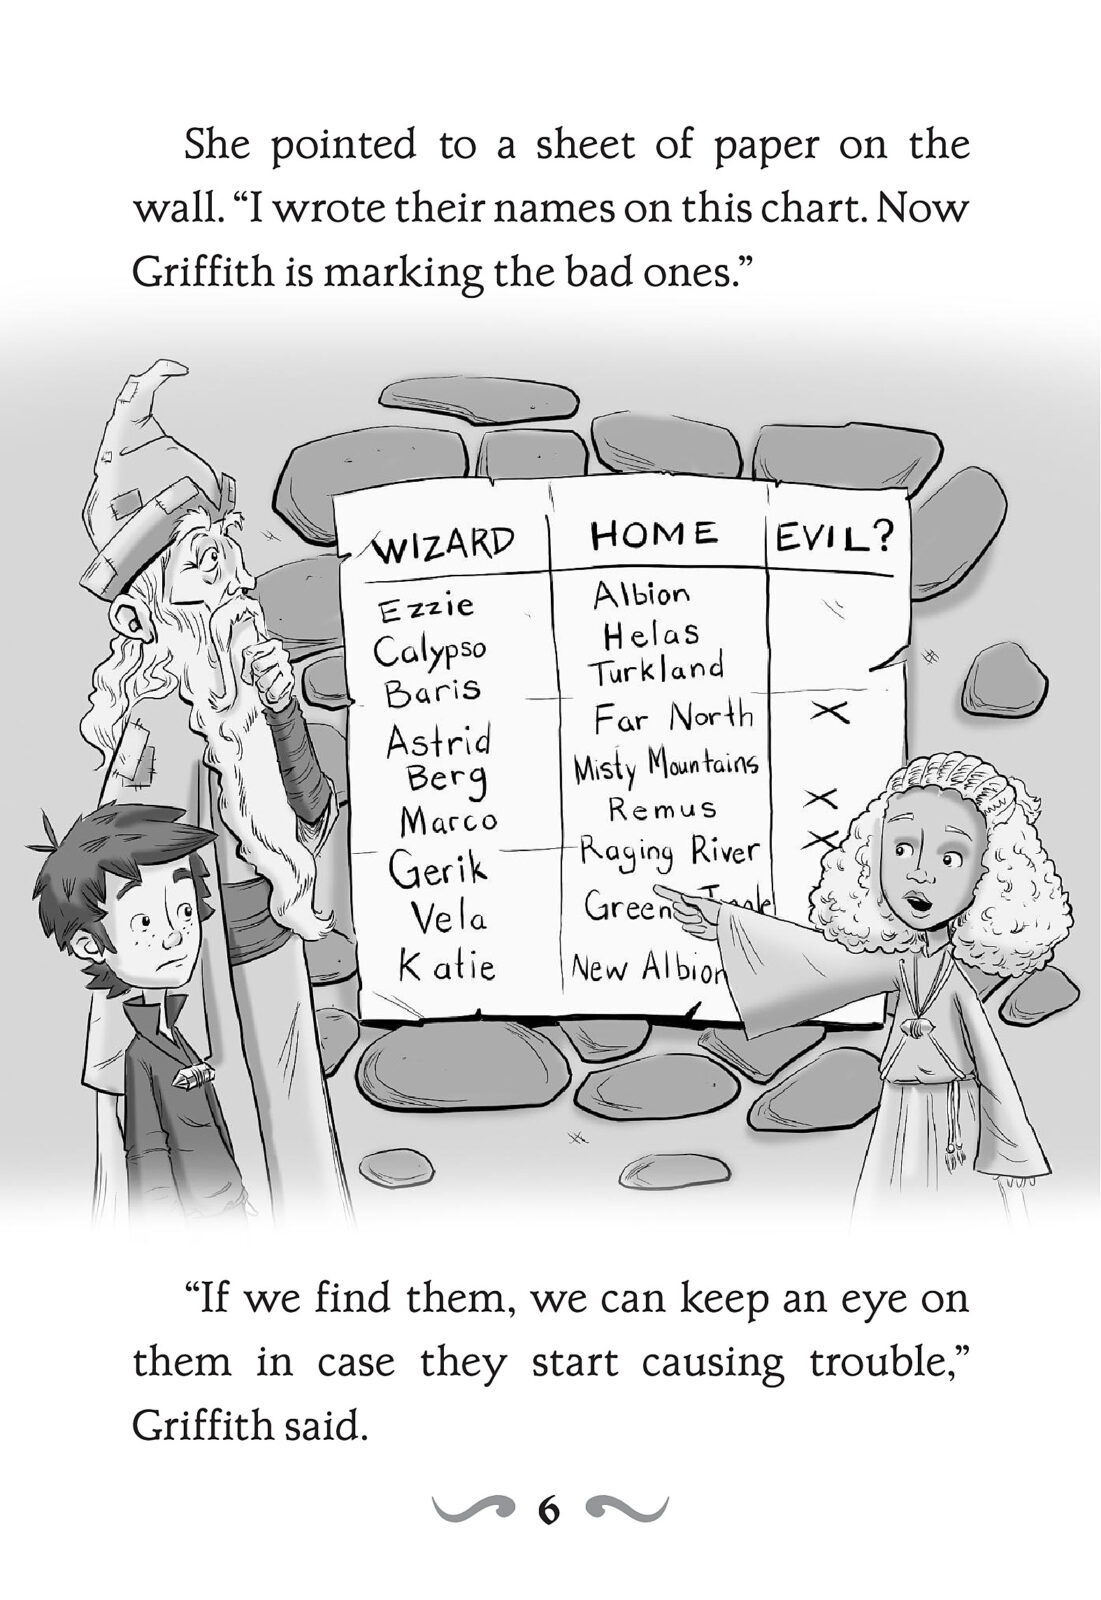 She pointed to a sheet of paper on the
wall. “I wrote their names on this chart. Now
Griffith is marking the bad ones.”
WIZARD HOME EVIL?
Ezzie Albion
Calypso Helas
Baris Turkland
Astrid Far North X
Berg Misty Mountains
Marco Remus X
Gerik Raging River X
Vela Green
Katie New Albion
“If we find them, we can keep an eye on
them in case they start causing trouble,”
Griffith said.
6